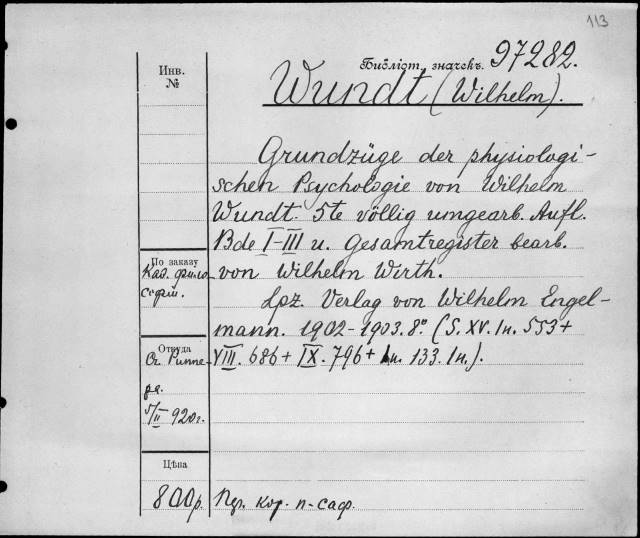 113
Инв.
№
Библіот. значекъ. 97282.
Wundt (Wilhelm).
Grundzüge der physiologi-
schen Psychologie von Wilhelm
Wundt. 5te völlig umgearb. Aufl.
Bde I-III u. Gesamtregister bearb.
von Wilhelm Wirth.
Lpz. Verlag von Wilhelm Engel-
mann. 1902-1903. 8°. (S. XV. 1н. 553+
VIII. 686+ IX. 796+ 1н. 133. 1н.).
По заказу
Каѳ. фило-
софіи.
Откуда
От Риппе-
ра.
5/II 920г.
Цѣна
800р.
кор. п-саф.